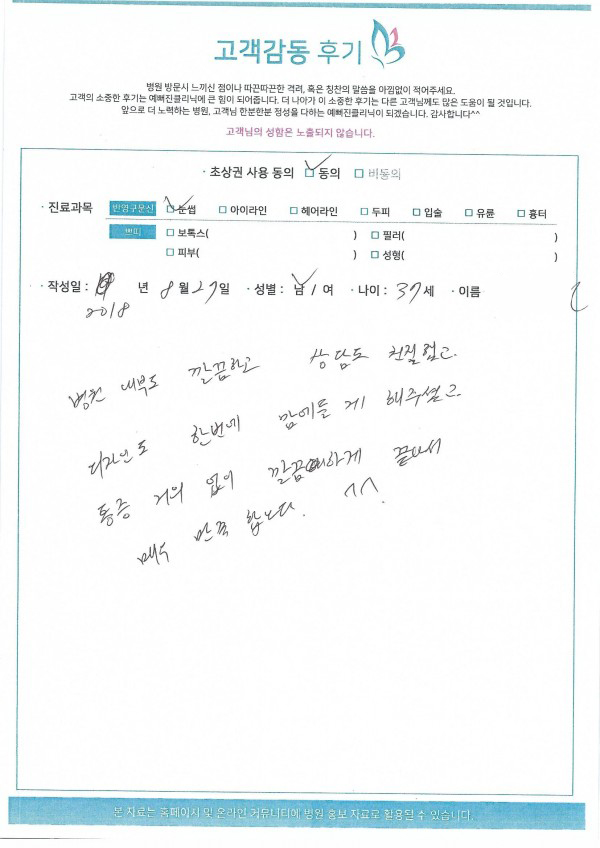 고객감동 후기
병원 방문시 느끼신 점이나 따끈따끈한 격려, 혹은 칭찬의 말씀을 아낌없이 적어주세요.
고객의 소중한 후기는 예뻐진클리닉에 큰 힘이 되어줍니다. 더 나아가 이 소중한 후기는 다른 고객님께도 많은 도움이 될 것입니다.
앞으로 더 노력하는 병원, 고객님 한분한분 정성을 다하는 예뻐진클리닉이 되겠습니다. 감사합니다^^
고객님의 성함은 노출되지 않습니다.
· 초상권 사용 동의 ☑ 동의 □ 비동의
· 진료과목 반영구문신 ☑ 눈썹 □ 아이라인 □ 헤어라인 □ 두피 □ 입술 □ 유륜 □ 흉터
쁘띠 □ 보톡스( ) □ 필러( )
□ 피부( ) □ 성형( )
· 작성일 : 년 8월 27일 · 성별 : 남 / 여 · 나이 : 37세 · 이름
2018
병원 내부도 깔끔하고 상담도 친절했고
디자인도 한번에 맘에들게 해주셨고
통증 거의 없이 깔끔하게 끝나서
매우 만족 합니다. ^^
본 자료는 홈페이지 및 온라인 커뮤니티에 병원 홍보 자료로 활용될 수 있습니다.